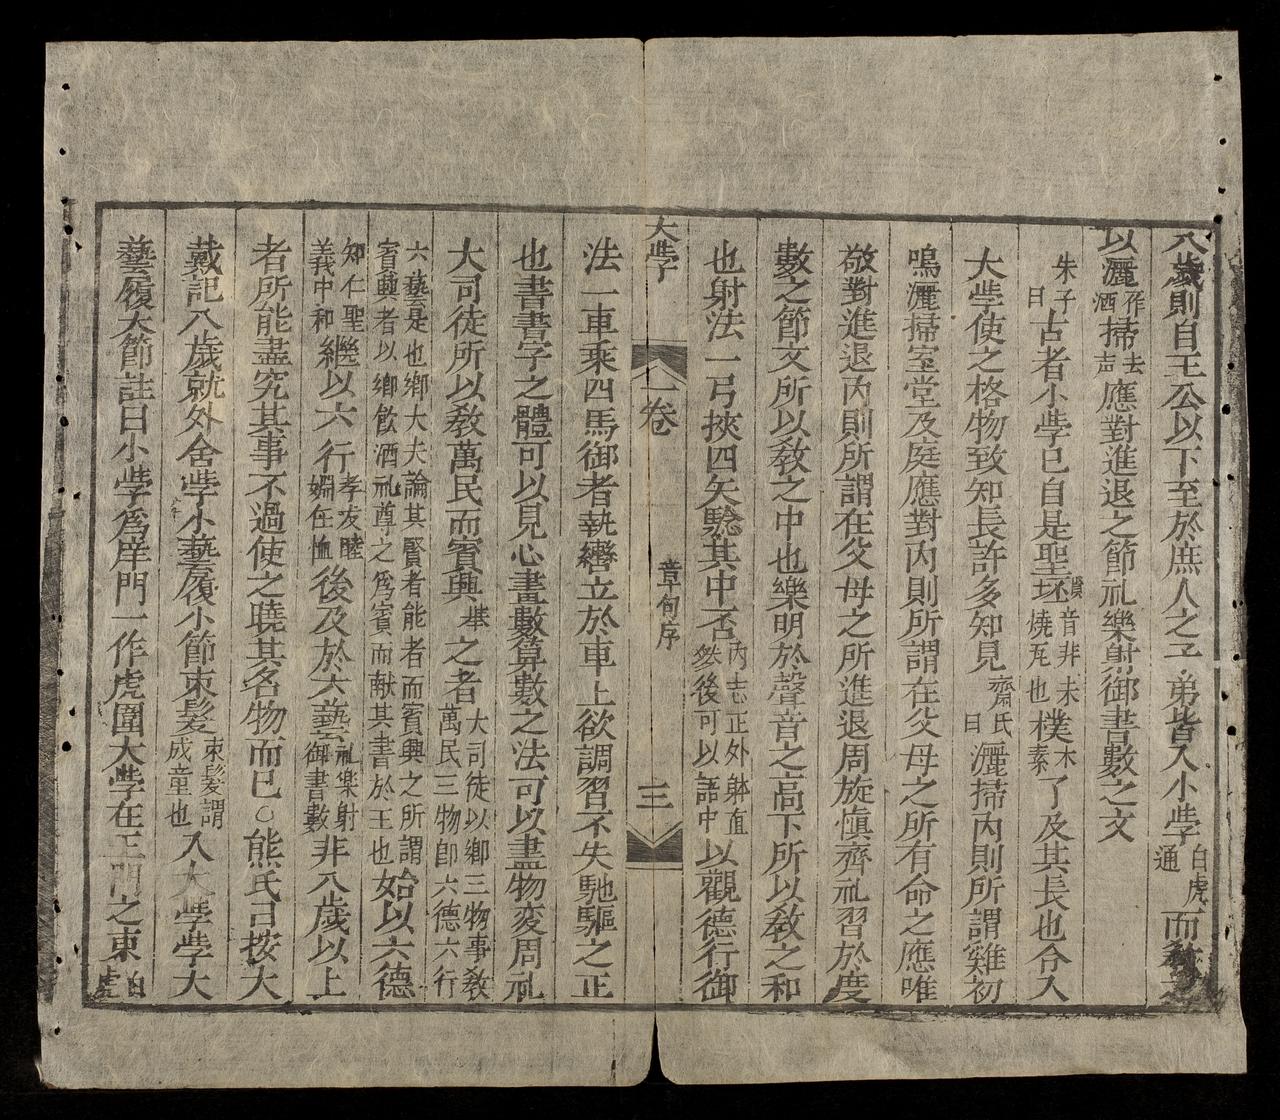 八歲則自王公以下至於庶人之子弟皆入小學白虎通而敎之
以灑作洒掃去声應對進退之節礼樂射御書數之文
朱子曰古者小學已自是聖坯音非未燒瓦也樸木素了及其長也令入
大學使之格物致知長許多知見齋氏曰灑掃内則所謂雞初
鳴灑掃室堂及庭應對内則所謂在父母之所有命之應唯
敬對進退内則所謂在父母之所進退周旋愼齊礼習於度
數之節文所以敎之中也樂明於聲音之高下所以敎之和
也射法一弓挾四矢驗其中否内志正外躰直然後可以語中以觀德行御
大學 一卷 章句序 三
法一車乘四馬御者執轡立於車上欲調習不失馳驅之正
也書書字之體可以見心畫數算數之法可以盡物変周礼
大司徒所以敎萬民而賓興舉之者大司徒以鄕三物事敎萬民三物卽六德六行
六藝是也鄕大夫論其賢者能者而賓興之所謂賓興者以鄕飮酒礼尊之爲賓而献其書於王也始以六德
知仁聖義中和繼以六行孝友睦婣任恤後及於六藝礼樂射御書數非八歲以上
者所能盡究其事不過使之曉其名物而已○熊氏曰按大
戴記八歲就外舍學小藝履小節束髮束髮謂成童也入大學學大
藝履大節註曰小學爲庠門一作虎闈大學在王門之東白虎